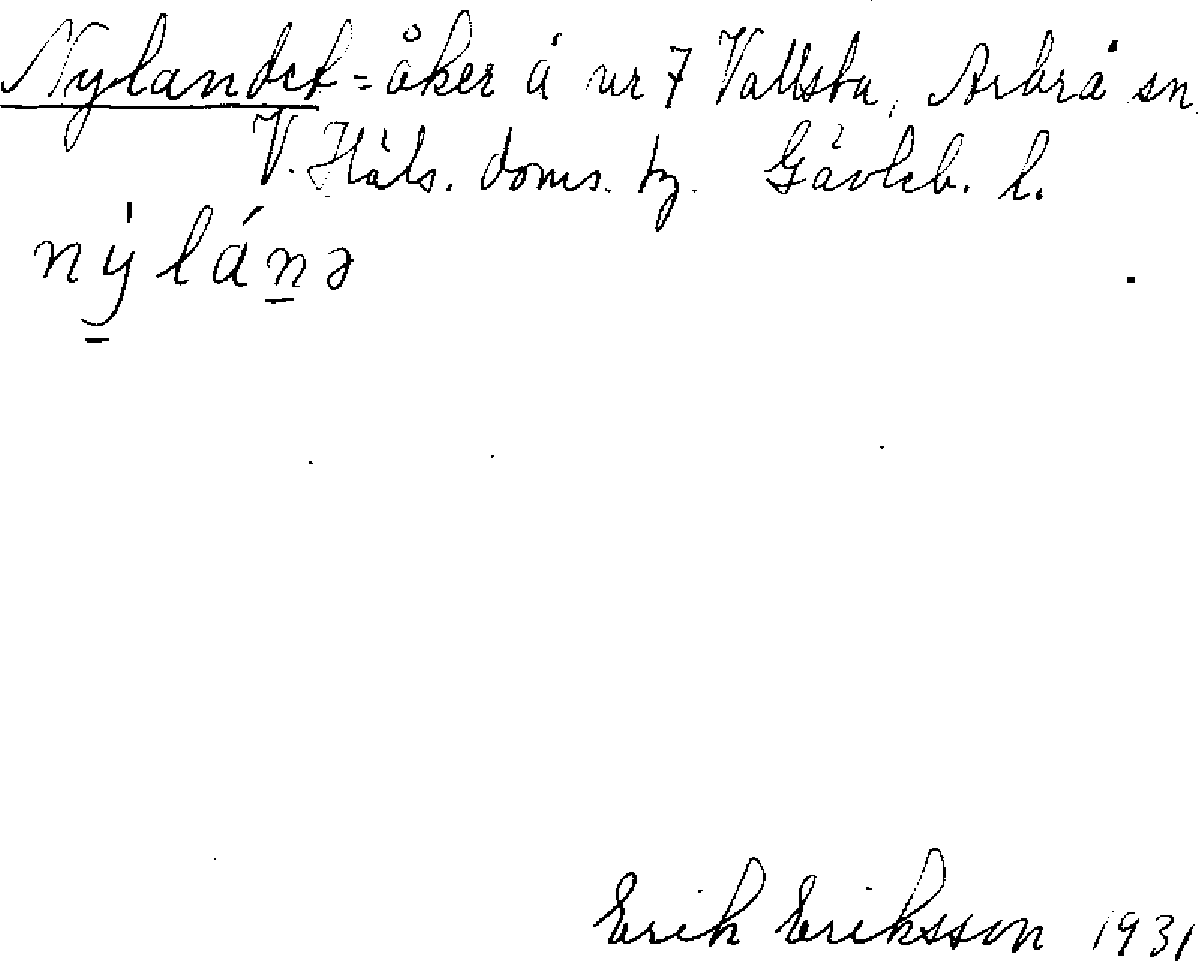 Nylandet = åker å nr 7 Vallsta, Arbrå sn.
V. Häls. doms. tg. Gävleb. l.
nýlánə
Erik Eriksson 1931